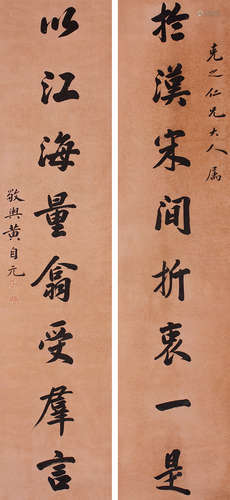 克之仁兄大人属
於漢宋間折衷一是
以江海量翕受羣言
敬輿黃自元